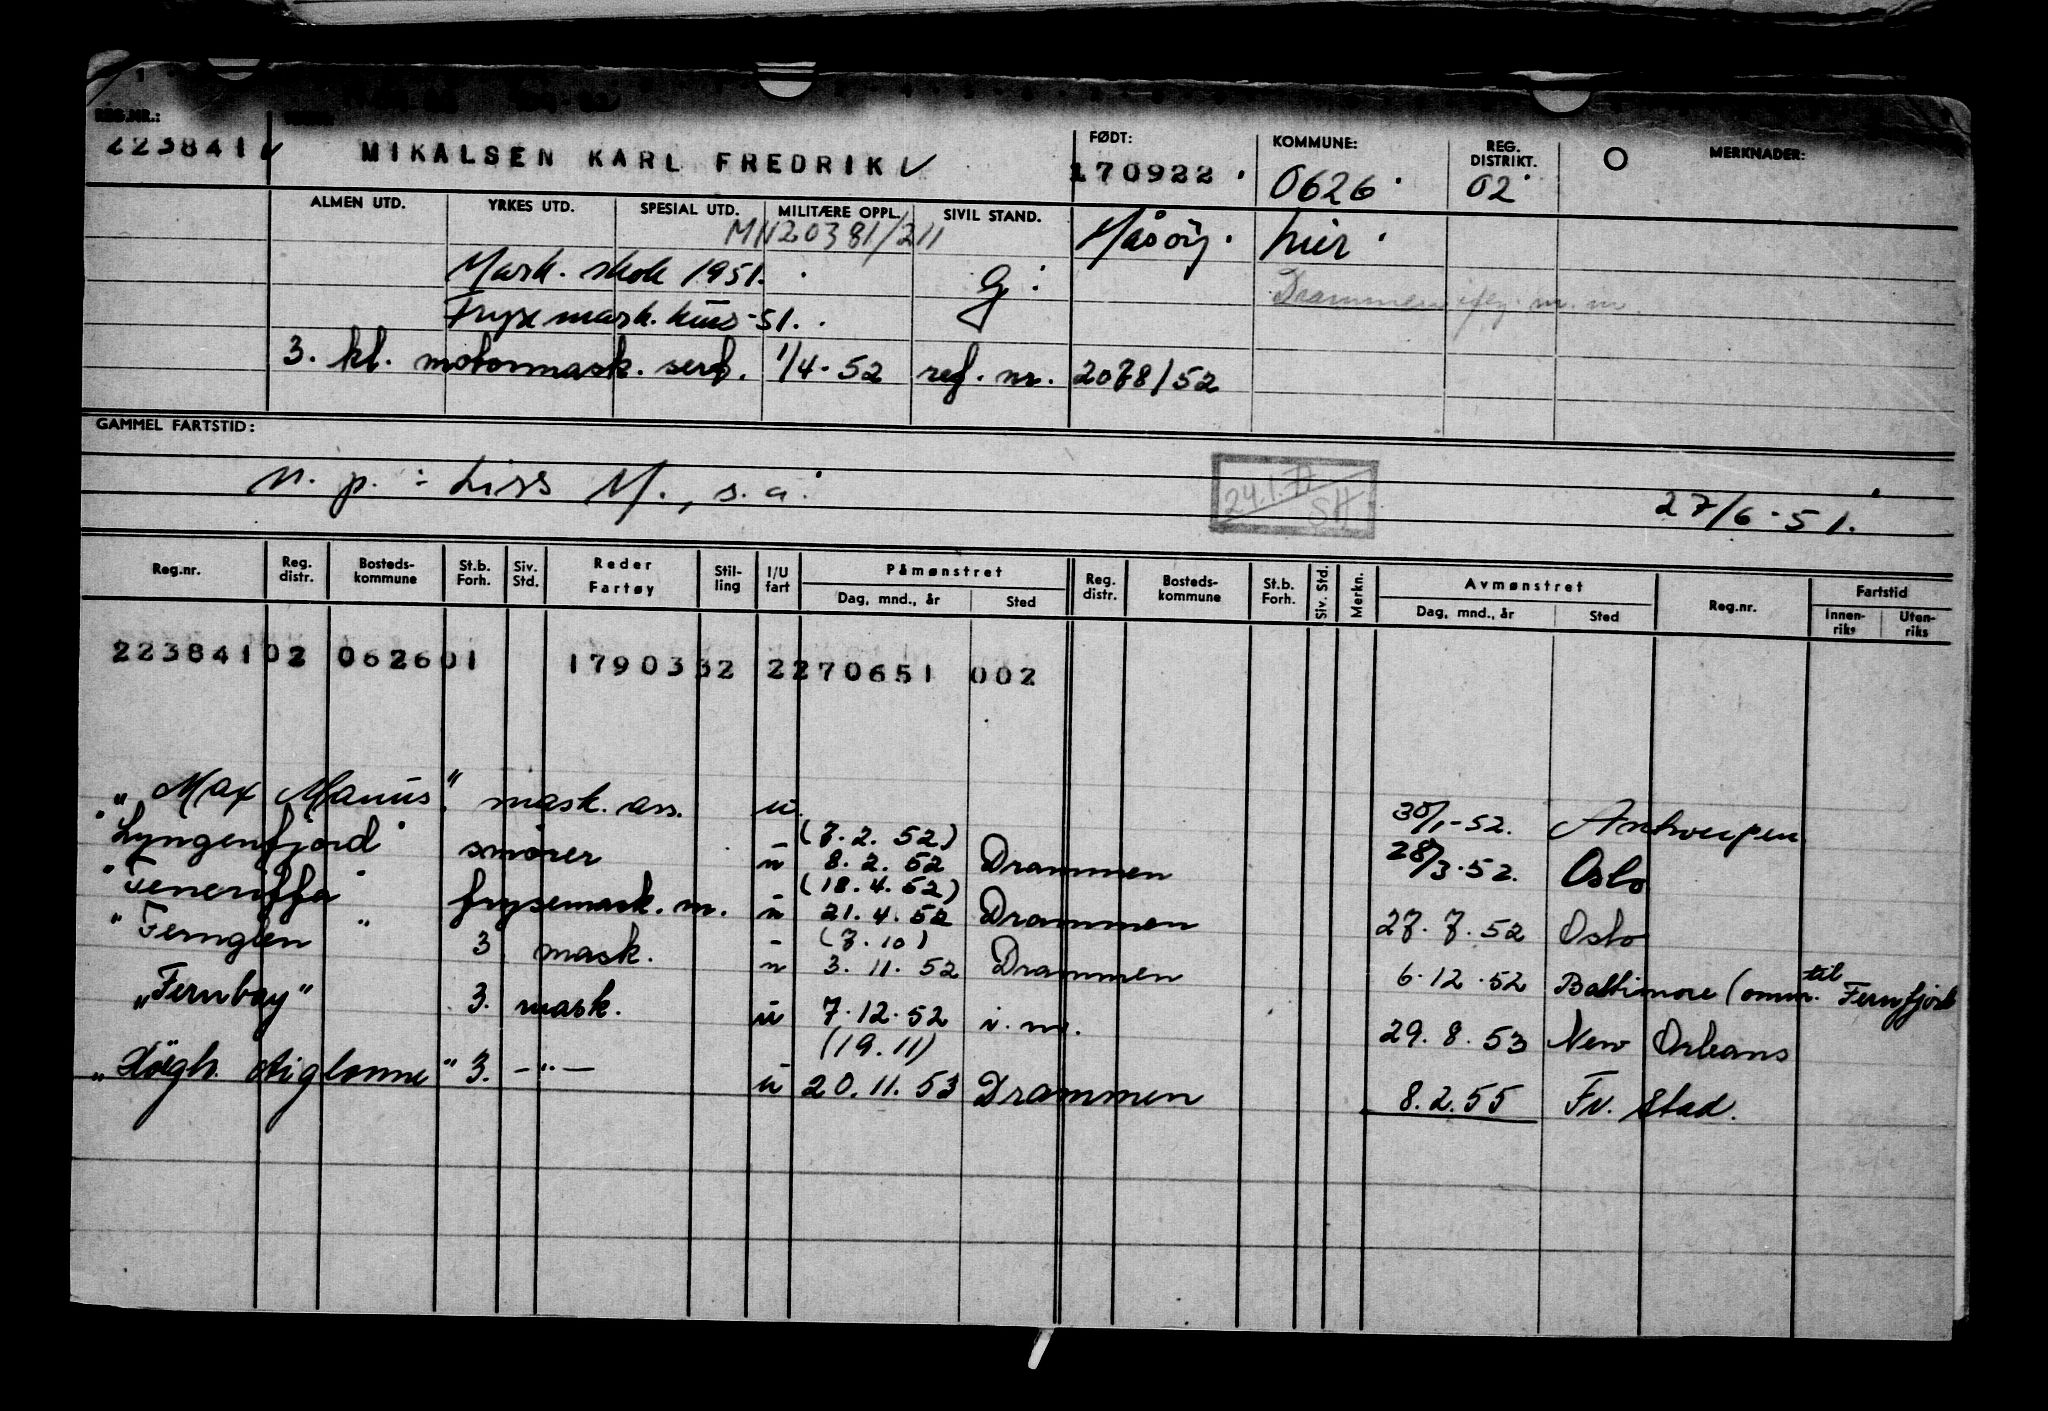 REG.NR.: FØDT: KOMMUNE: REG. DISTRIKT. MERKNADER:
223841 MIKALSEN KARL FREDRIK 170922 0626 02
ALMEN UTD. YRKES UTD. SPESIAL UTD. MILITÆRE OPPL. SIVIL STAND. Måsöy Lier
MN20381/211
Mask. skole 1951. G Drammen
Fryse mask. kurs -51.
3. kl. motormask. sert. 1/4-52 ref. nr. 2078/52
GAMMEL FARTSTID:
n. p. : Liss M., s.a. 24.1. SH 27/6-51.
Reg.nr. Reg. distr. Bosteds-kommune St.b. Forh. Siv. Std. Reder Fartøy Stil-ling I/U fart Påmønstret Dag, mnd., år Sted Reg. distr. Bosteds-kommune St.b. Forh. Siv. Std. Merkn. Avmønstret Dag, mnd., år Sted Reg.nr. Fartstid Innen-riks Uten-riks
223841 02 0626 01 1790332 2270651 002
"Max Manus" mask. ass. u. 30/1-52. Antwerpen
"Lyngenfjord" smører u (7.2.52) 8.2.52 Drammen 28/3-52. Oslo
"Teneriffa" frysemask. m. u (18.4.52) 21.4.52 Drammen 27.7.52 Oslo
"Fernglen" 3 mask. u (7.10) 3.11.52 Drammen 6.12.52 Baltimore (omm. til Fernfjord
"Fernbay" 3. mask. u 7.12.52 i. m. 29.8.53 New Orleans
"Høegh Aiglonne" 3. -"- u (19.11) 20.11.53 Drammen 8.2.55 Fr. stad.